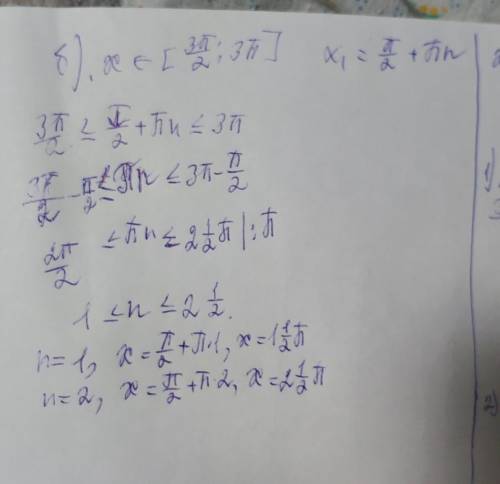 б). x ∈ [3π/2; 3π]   x₁ = π/2 + πn
3π/2 ≤ π/2 + πn ≤ 3π
3π/2 - π/2 ≤ πn ≤ 3π - π/2
2π/2 ≤ πn ≤ 2 1/2 π | : π
1 ≤ n ≤ 2 1/2.
n=1, x = π/2 + π·1, x = 1 1/2 π
n=2, x = π/2 + π·2, x = 2 1/2 π